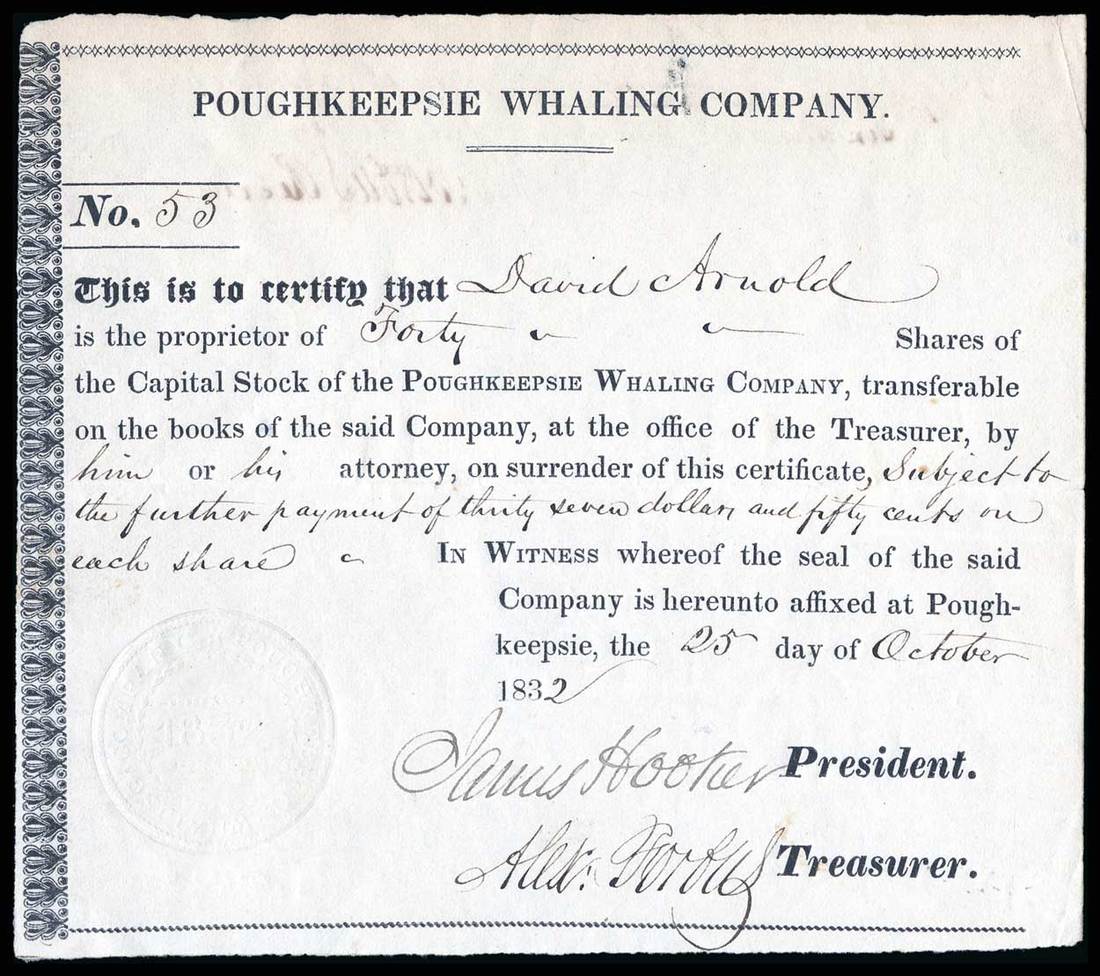 POUGHKEEPSIE WHALING COMPANY.
No. 53
This is to certify that David Arnold
is the proprietor of Forty Shares of
the Capital Stock of the POUGHKEEPSIE WHALING COMPANY, transferable
on the books of the said Company, at the office of the Treasurer, by
him or his attorney, on surrender of this certificate, Subject to
the further payment of thirty seven dollars and fifty cents on
each share IN WITNESS whereof the seal of the said
Company is hereunto affixed at Pough-
keepsie, the 25 day of October
1832
James Hooker President.
Alex. Forbus Treasurer.